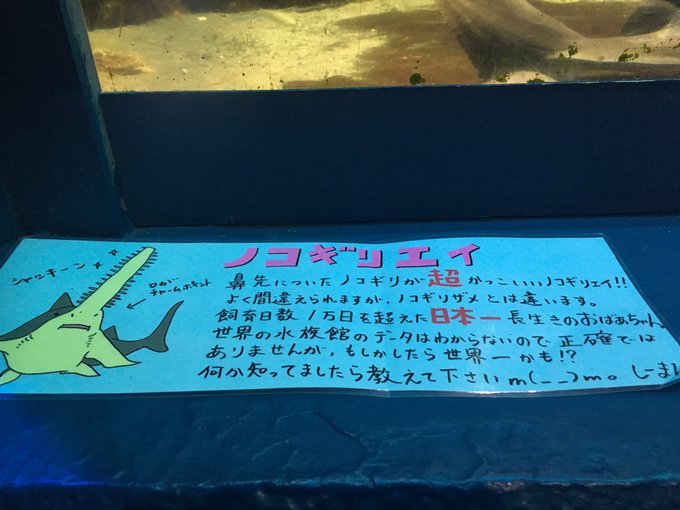 ノコギリエイ
シャッキーン
口が
チャームポイント
鼻先についたノコギリが超かっこいいノコギリエイ!!
よく間違えられますが、ノコギリザメとは違います。
飼育日数1万日を超えた日本一長生きのおばあちゃん。
世界の水族館のデータはわからないので正確では
ありませんが、もしかしたら世界一かも!?
何か知ってましたら教えて下さいm(__)m。しーまん